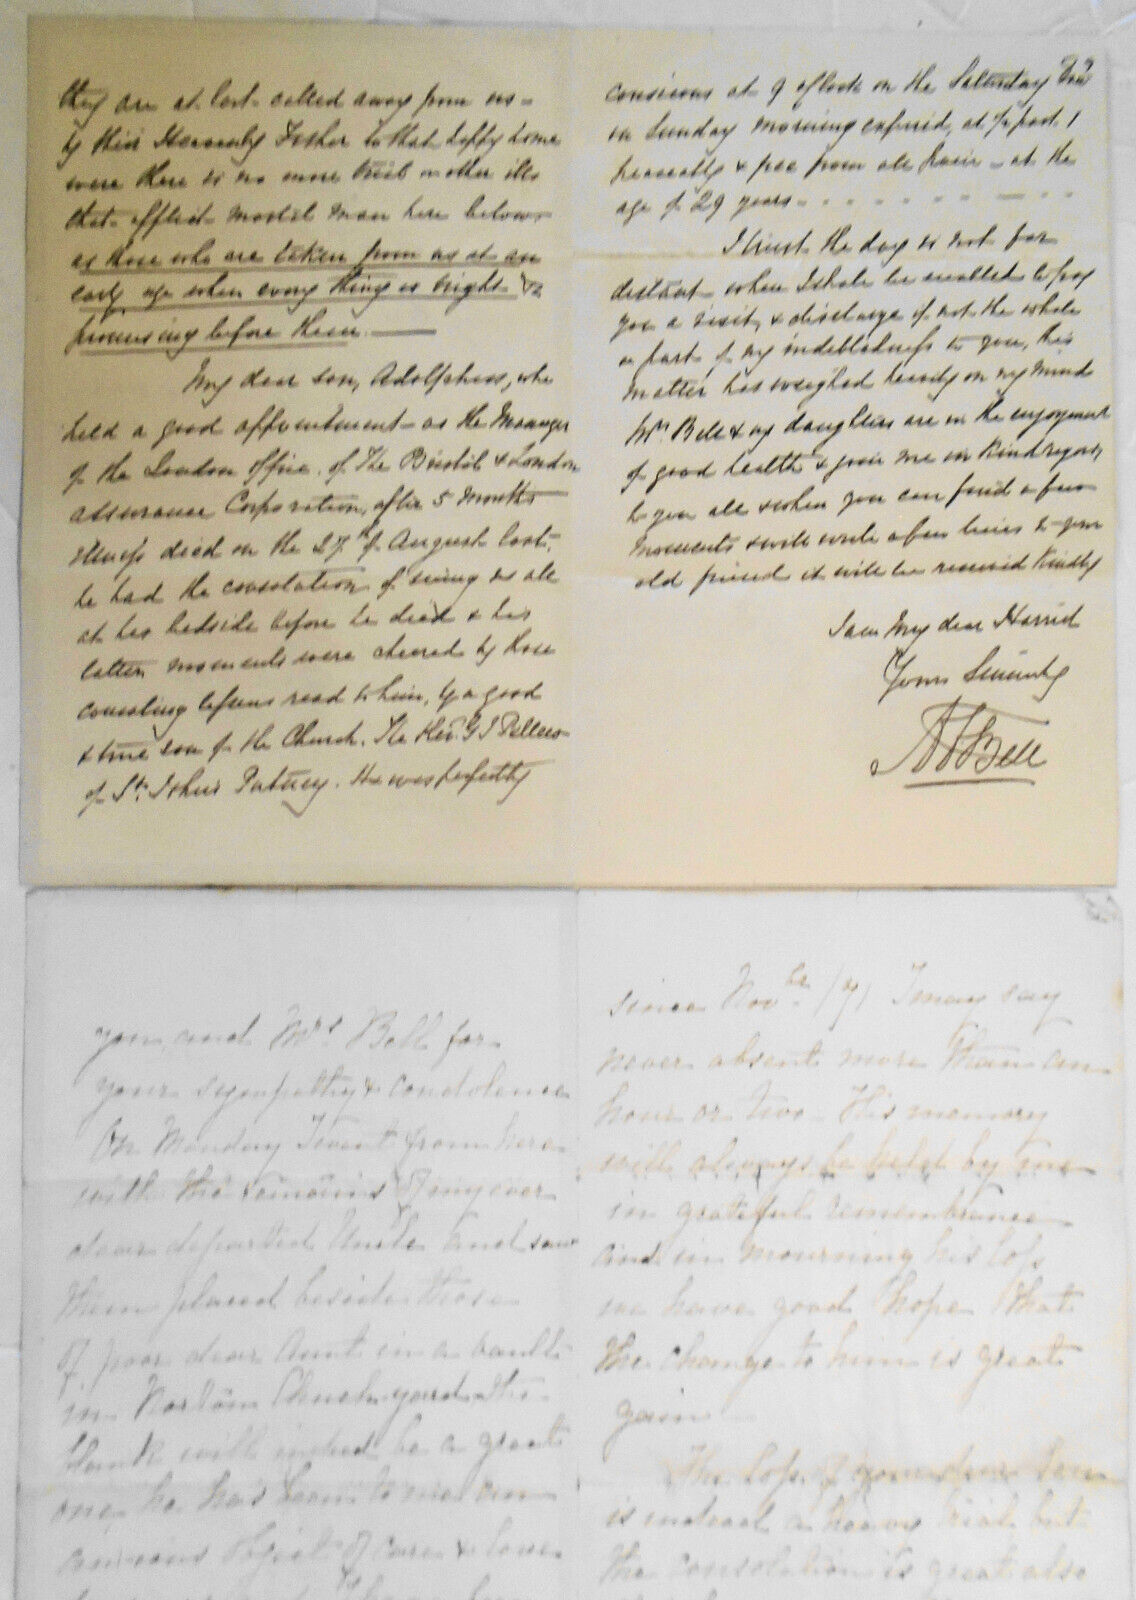 they are at last called away from us
by their Heavenly Father to that happy home
were there is no more trial or other ills
that afflict mortal man here below
as those who are taken from us at an
early age when every thing is bright &
promising before them.
My dear son, Adolphus, who
held a good appointment as the Manager
of the London office of The Bristol & London
assurance Corporation, after 5 months
illness died on the 27th of August last,
he had the consolation of seeing us all
at his bedside before he died & his
latter moments were cheered by those
consoling lessons read to him, by a good
& true son of the Church. The Revd. G I
of St. John's Putney. He was perfectly
conscious at 9 oclock on the Saturday &
on Sunday morning expired, at 1/2 past 1
peaceably & free from all pain - at the
age of 29 years
I trust the day is not far
distant when I shall be enabled to pay
you a visit, & discharge if not the whole
a part of my indebtedness to you, this
matter has weighed heavily on my mind
Mrs. Bell & my daughters are in the enjoyment
of good health & join me in kind regards
to you all & when you can find a few
moments & will write a few lines to your
old friend it will be received kindly
I am My dear Harriet
Yours Sincerely
Bell
you and Mrs Bell for
your sympathy & condolence
On Monday I went from here
with the remains of my ever
dear departed Uncle and saw
them placed beside those
of poor dear Aunt in a vault
in Norton Church yard. The
blank will indeed be a great
one, he has been to me an
anxious object of care & love
since Novbr /71 I may say
never absent more than an
hour or two. His memory
will always be held by me
in grateful remembrance
and in mourning his loss
we have good hope that
the change to him is great
gain
The loss of your dear Son
is indeed a heavy trial but
the consolation is great also